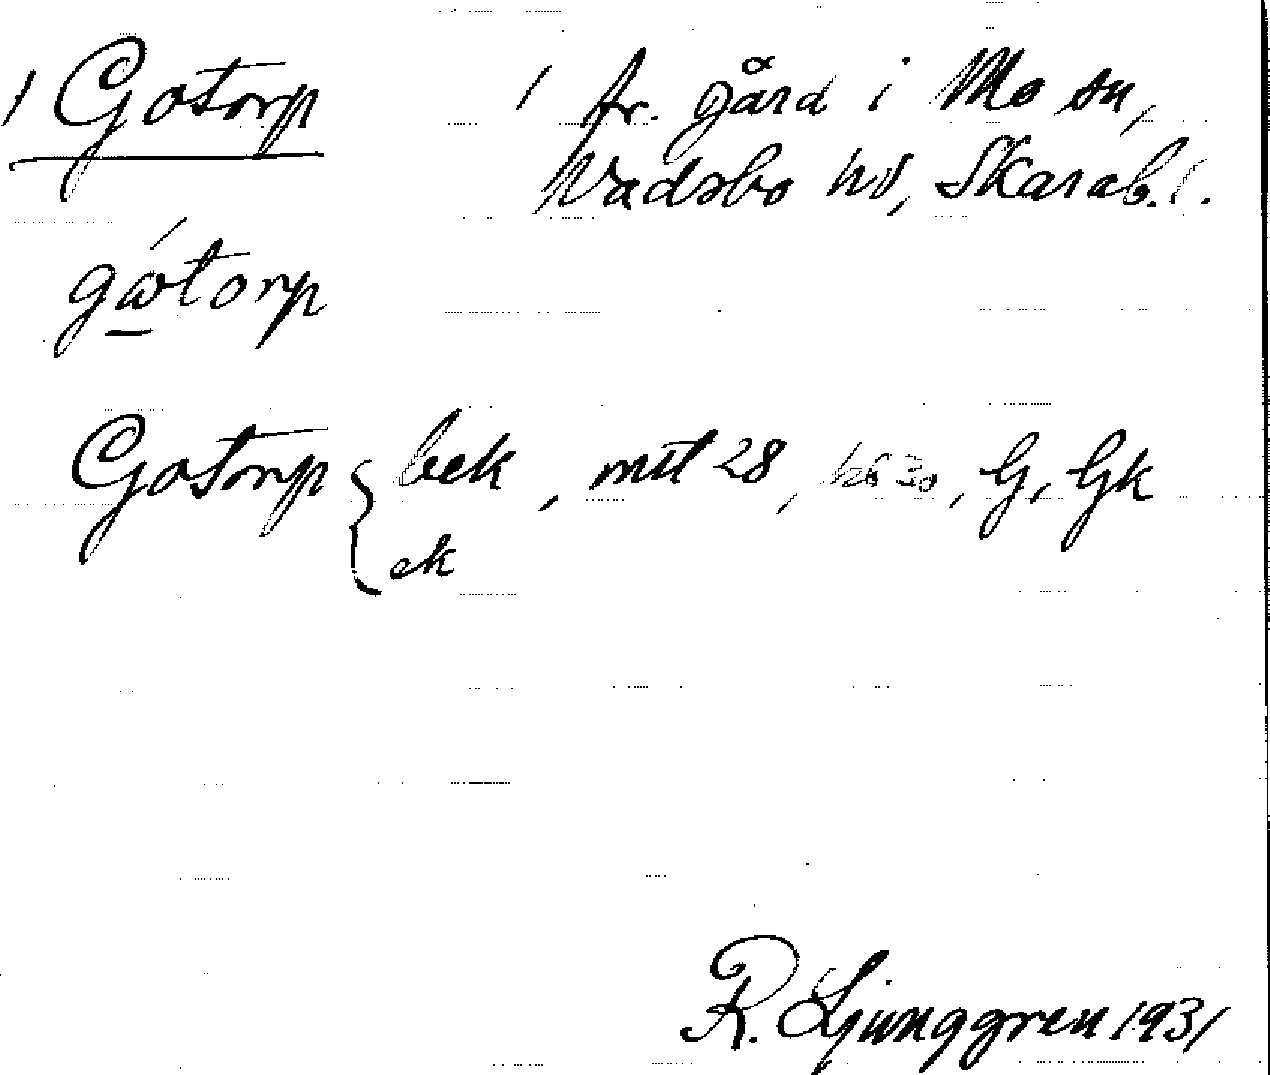 / Gotorp / fr. gård i Mo sn,
Vadsbo hd, Skarab. l.
gótorp
Gotorp { bek , mtl 28, hfs 30, G, Gk
ek
R. Ljunggren 1931